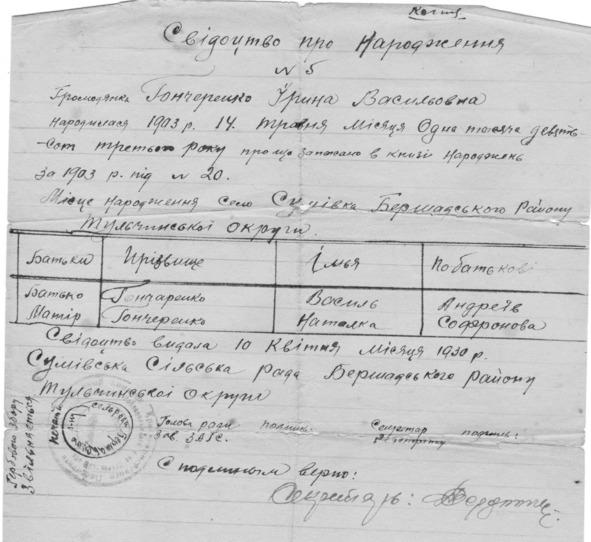 Копия
Свідоцтво про Народження
N 5
Громодянка Гончеренко Ірина Васильовна
народилася 1903 р. 14. травня місяця Одна тисяча девять
-сот третього року про що записано в книзі Народжень
за 1903 р. під N 20.
Місце народження село Сумівка Бершадського Району
Тульчинської округи.
Батьки Прізвище Імья по батькові
Батько Гончаренко Василь Андреїв
Матір Гончеренко Наталка Софронова
Свідоцтво видала 10 Квітня місяця 1930 р.
Сумівська Сільська рада Бершадського Району
Тульчинської округи
Голова ради подпись. Секретар подпись:
Зав. ЗАГС.
Гербового збору
Звільняється
печать
С подлинным верно:
Секретарь: